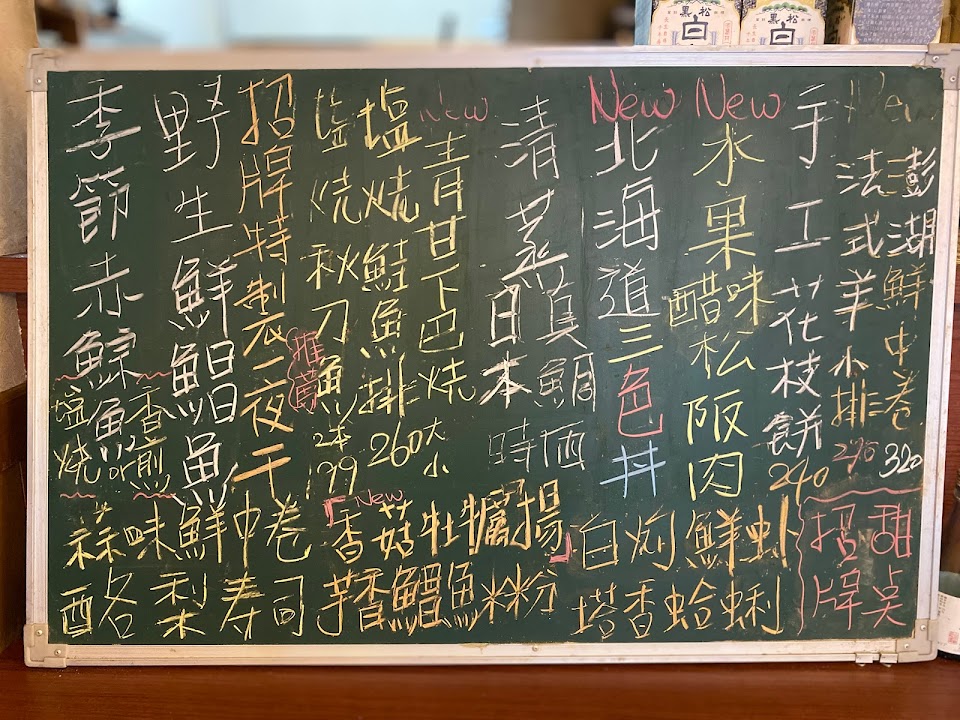 黑松
白
季節赤鯮魚
塩燒or香煎
野生鮮鯧魚
招牌特製一夜干
推薦
塩燒秋刀魚
2本199
塩燒鮭魚排
260
New
青甘下巴燒
大
小
清蒸日本真鯛
時価
New
北海道三色丼
New
水果醋味松阪肉
手工花枝餅
240
New
法式羊小排
290
澎湖鮮中卷
320
蒜味鮮中卷
New
香菇牡蠣揚
白灼鮮蝦
酪梨寿司
芋香鯧魚米粉
塔香蛤蜊
招牌
甜